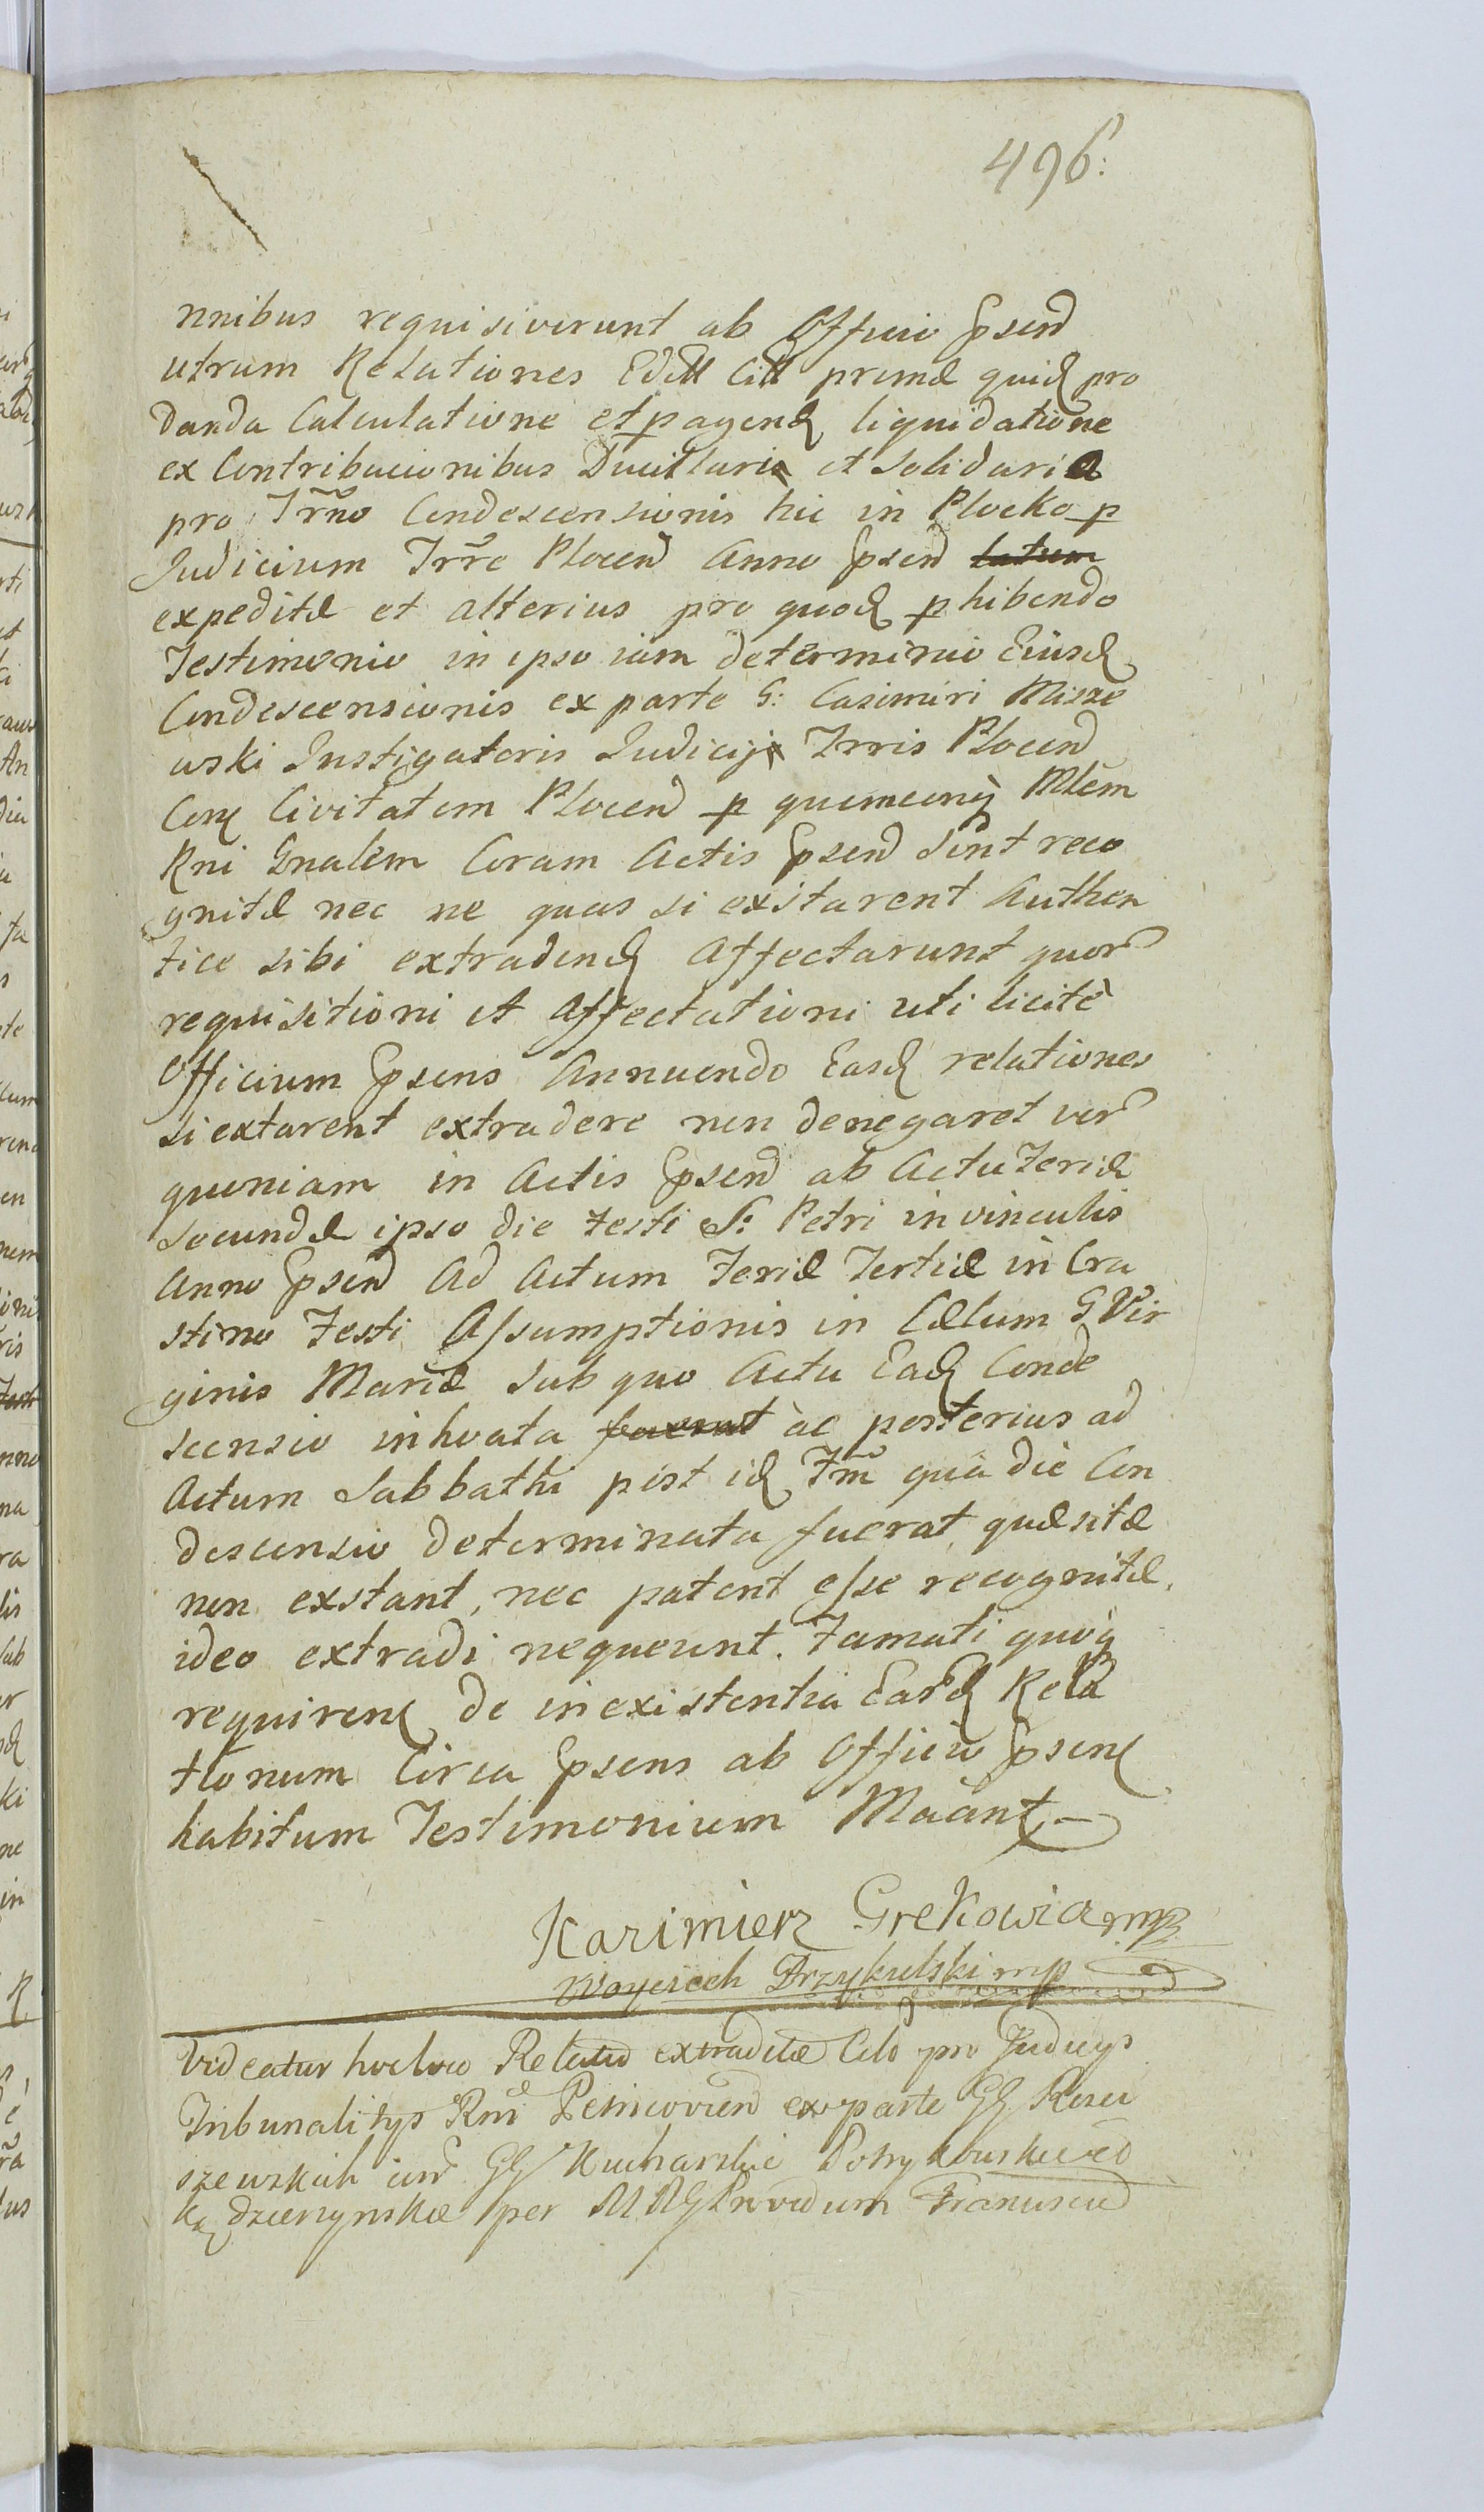 496.
nnibus requisiverunt ab Officio Epsend
utrum Relationes Edctt Citt primæ quid pro
danda Calculatione et pagend liquidatione
ex Contribucionibus Ducillaria et Solidaria
pro Trno Condescensionis hic in Plocko p
Judicium Trre Plocend Anno Epsend latum
expeditæ et alterius pro quod phibendo
Testimonio in ipso iam determinio Eiusd
Condescensionis ex parte G: Casimiri Misze
wski Instigatoris Judicij Trris Plocend
Conq Civitatem Plocend p quemcunq Mlem
Rni Gnalem Coram Actis Epsend sint reco
gnitæ nec ne quas si exstarent Authen
tice sibi extradend Affectarunt quor
requisitioni et Affectationi uti licite
Officium Epsens Annuendo Easd relationes
si extarent extradere non denegaret ver
quoniam in Actis Epsend ab Actu Feriæ
Secundæ ipso die Festi S: Petri in vinculis
Anno Epsend Ad Actum Feriæ Tertiæ in Cra
stino Festi Assumptionis in Cælum G Vir
ginis Mariæ sub quo Actu Ead Conde
scensio inhoata fuerat ac posterius ad
Actum Sabbathi post id Fm qua die Con
descensio determinata fuerat, quæsitæ
non exstant, nec patent esse recognitæ,
ideo extradi nequeunt. Famati quoq
requirenq de inexistentia Eard Rela
tionum Circa Epsens ab Officio Epsenq
habitum Testimonium Maant
Kazimierz Grekowicz mp
Woyciech Przykulski mp
Videatur hocloco Relatio extraditæ Cito pro Judicys
Tribunalitys Rni Petricovien ex parte GG
szewskich GG Kucharskie Potrykowskie et
Kędzierzynskie per M Providum Franciscu